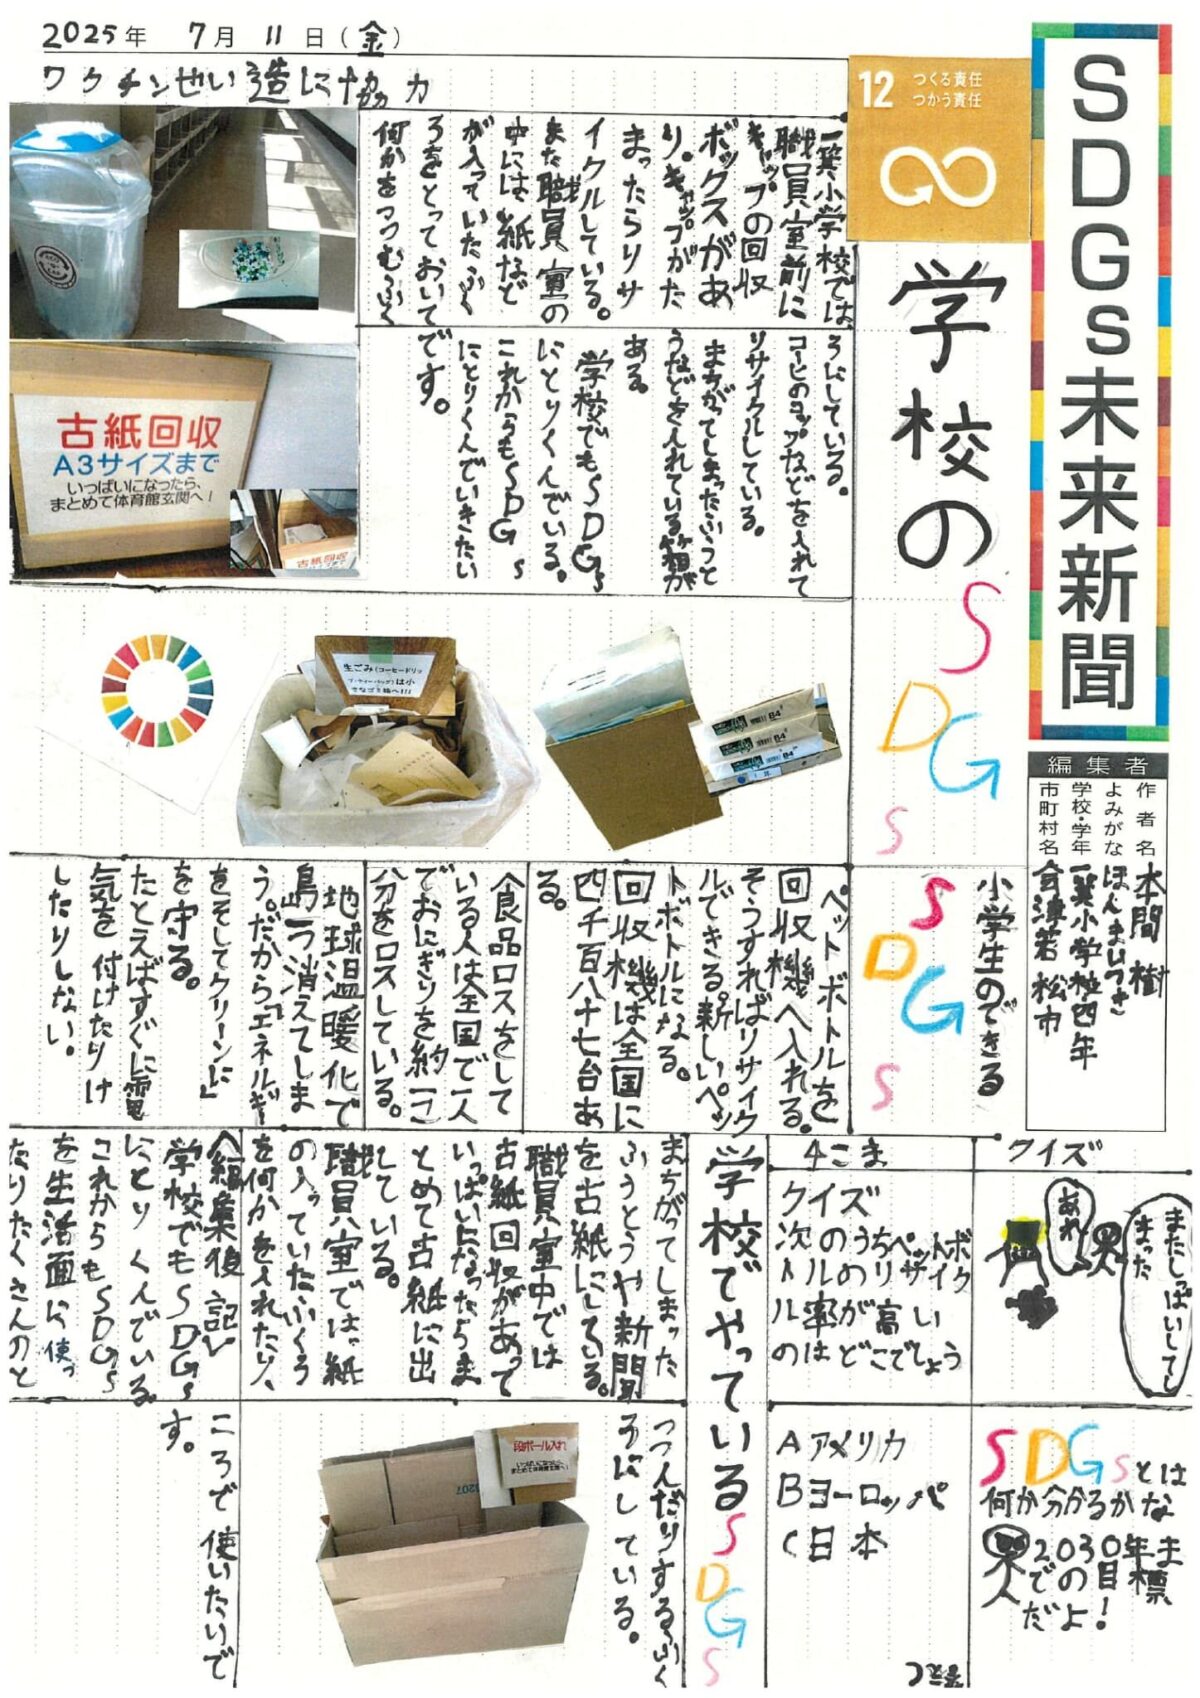 SDGs未来新聞
編集者
作者名 本間 樹
よみがな ほんま いつき
学校・学年 一箕小学校四年
市町村名 会津若松市
2025年 7月 11日(金)
12 つくる責任
つかう責任
学校のSDGs
ワクチンせい造に協力
一箕小学校では、
職員室前に
キャップの回収
ボックスがあ
り。キャップがた
まったらリサ
イクルしている。
また職員室の
中には紙など
が入っていたふく
ろをとっておいて
何かをつつむふく
ろにしている。
コーヒのコップなどを入れて
リサイクルしている。
まちがってしまったふうと
うなどを入れている箱が
ある。
学校でもSDGs
にとりくんでいる。
これからもSDGs
にとりくんでいきたい
です。
古紙回収
A3サイズまで
いっぱいになったら、
まとめて体育館玄関へ!
古紙回収
生ごみ(コーヒードリッ
プ・ティーバッグ)は小
さなゴミ箱へ!!!
B4
B4
B4
小学生のできる
SDGs
ペットボトルを
回収機へ入れる。
そうすればリサイク
ルできる。新しいペッ
トボトルになる。
回収機は全国に
四千百八十七台あ
る。
食品ロスをして
いる人は全国で一人
でおにぎりを約一こ
分をロスしている。
地球温暖化で
島一つ消えてしま
う。だから「エネルギー
をそしてクリーンに」
を守る。
たとえばすぐに電
気を付けたりけ
したりしない。
学校でやっているSDGs
まちがってしまった
ふうとうや新聞
を古紙にしている。
職員室中では
古紙回収があって
いっぱいになったらま
とめて古紙に出
している。
職員室では紙
の入っていたふくろ
を何かを入れたり、
つつんだりするふく
ろにしている。
段ボール入れ
いっぱいになったら、
まとめて体育館玄関へ!
<編集後記>
学校でもSDGs
にとりくんでいる
これからもSDGs
を生活面に使っ
たりたくさんのと
ころで使いたいで
す。
4こま
クイズ
次のうちペットボ
トルのリサイク
ルの率が高い
のはどこでしょう
A アメリカ
B ヨーロッパ
C 日本
答えC
クイズ
またしっぱいして
しまった
あれ
SDGsとは
何か分かるかな
2030年ま
での目標
だよ!